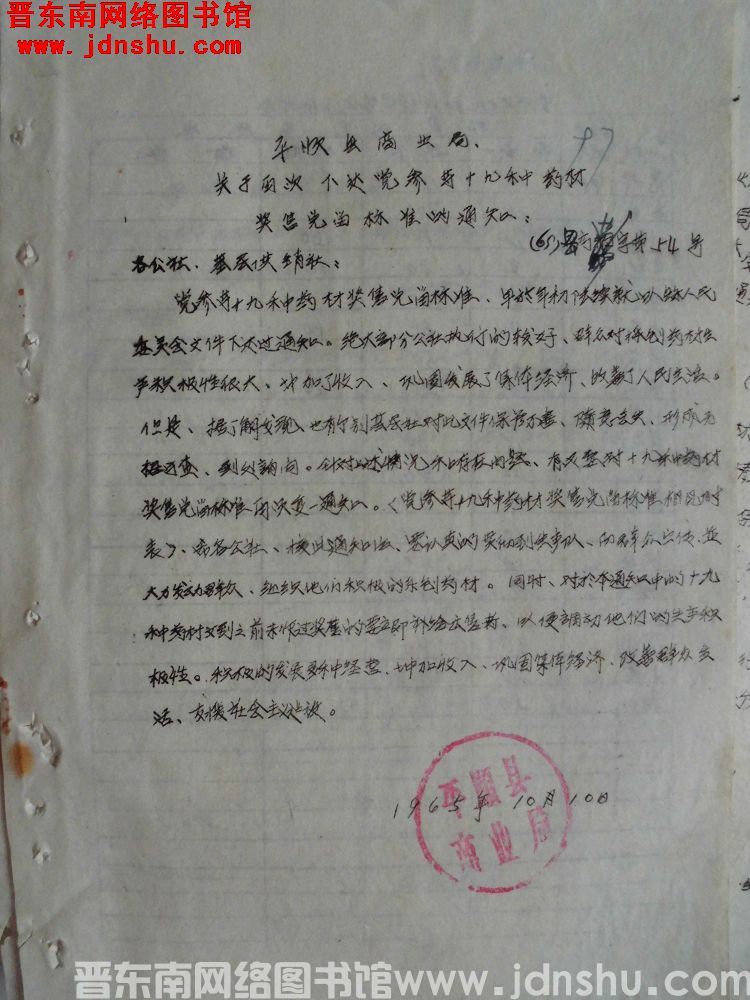 晋东南网络图书馆
www.jdnshu.com
97
平顺县商业局
关于再次下达党参等十九种药材
奖售兑由标准的通知:
(65)县商字第54号
各公社、基层供销社:
党参等十九种中药材奖售标准、早于年初陆续就以县人民
委员会文件下达过通知。绝大部分公社执行的较好、群众对採刨药材生
产积极性很大、增加了收入、巩固发展了集体经济、改善了人民生活。
但是、据了解发现、也有个别基层社对此文件保管不善、随意丢失、形成无
据可查、到处询问。针对上述情况和存在问题、有必要对十九种中药材
奖售标准再次复一通知。《党参等十九种中药材奖售标准相见附
表》、希各公社、接此通知后、要认真的贯彻到生产队、向群众宣传、并
大力发动群众、组织他们积极的採刨药材。同时、对于本通知中的十九
种药材收到之前未作过奖售的要立即补给、以便调动他们的生产积
极性。积极的发展多种经营、增加收入、巩固集体经济、改善群众生
活、支援社会主义建设。
1965年10月10日
平顺县
商业局
晋东南网络图书馆www.jdnshu.com